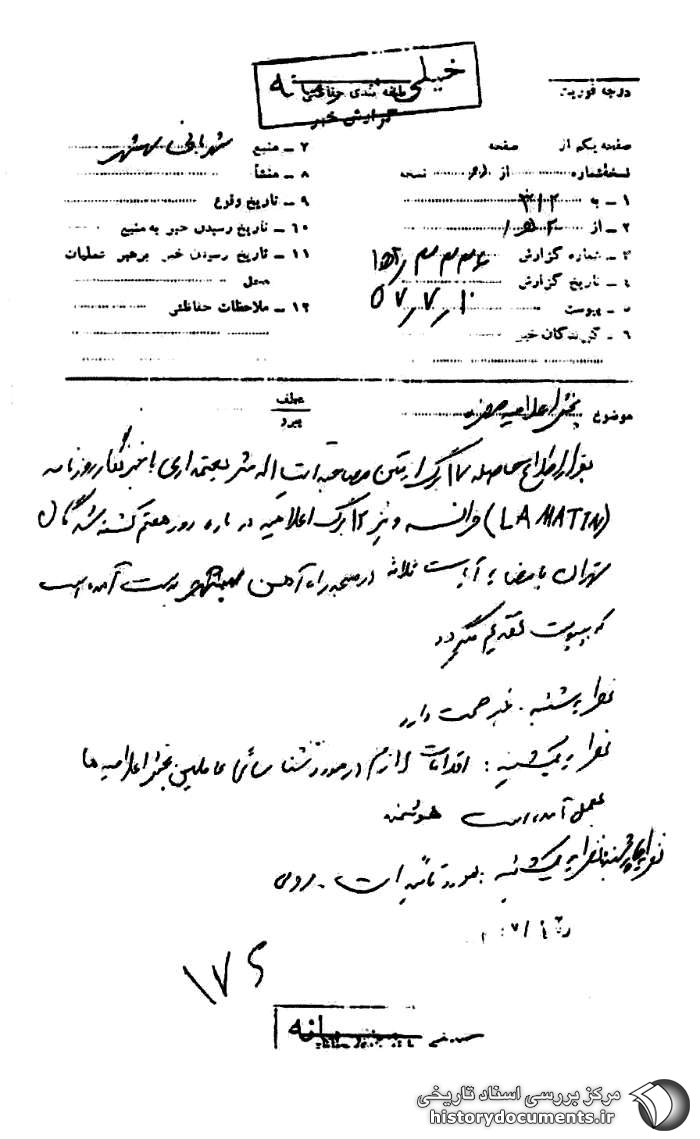 خیلی محرمانه
طبقه بندی حفاظتی
گزارش خبر
درجه فوریت
صفحه یکم از صفحه
نسخه شماره از نسخه
۱ – به ۳۱۲
۲ – از ۱ﻫ۲
۳ – شماره گزارش
۴ – تاریخ گزارش ۵۷/۷/۱۰
۵ – پیوست
۶ – گیرندگان خبر
۷ – منبع شهربانی بهشهر
۸ – منشأ
۹ – تاریخ وقوع
۱۰ – تاریخ رسیدن خبر به منبع
۱۱ – تاریخ رسیدن خبر برهبر عملیات
محل
۱۲ – ملاحظات حفاظتی
موضوع پخش اعلامیه مضره
عطف
پیرو
برابر اطلاع حاصله ۱۷ برگ از متن مصاحبه آیت اله شریعتمداری با خبرنگار روزنامه
(LA MATIN) فرانسه و نیز ۱۲ برگ اعلامیه درباره روز هفتم کشته شدگان
تهران بامضاء آیات ثلاثه در مسجد راه آهن بهشهر بدست آمده است
که بپیوست تقدیم میگردد
نظریه شنبه . خبر صحت دارد
نظریه یکشنبه : اقدامات لازم در مورد شناسائی عاملین پخش اعلامیه ها
بعمل آمده است
نظریه چهارشنبه نظریه یکشنبه مورد تائید است .
۱۷۶
مرکز بررسی اسناد تاریخی
historydocuments.ir